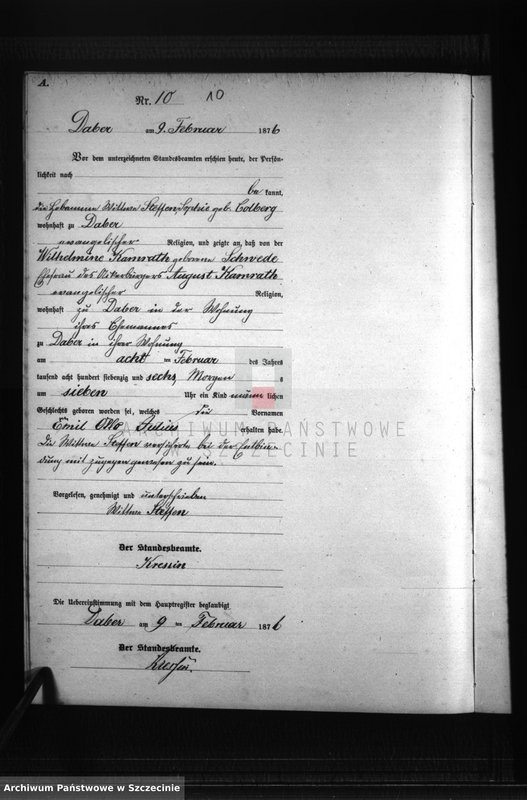 A.
Nr. 10 10
Daber am 9. Februar 1876
Vor dem unterzeichneten Standesbeamten erschien heute, der Persön-
lichkeit nach
be kannt,
die Hebamme Wittwe Steffen, Sophie geb. Colberg
wohnhaft zu Daber
evangelischer Religion, und zeigte an, daß von der
Wilhelmine Kamrath geborene Schwede
Ehefrau des Ackerbürgers August Kamrath
evangelischer Religion,
wohnhaft zu Daber in der Wohnung
ihres Ehemannes
zu Daber in ihrer Wohnung
am acht ten Februar des Jahres
tausend acht hundert siebenzig und sechs, Morgens
um sieben Uhr ein Kind männlichen
Geschlechts geboren worden sei, welches Vornamen
Emil Otto Julius erhalten habe.
Die Wittwe Steffen versicherte bei der Entbin-
dung mit zugegen gewesen zu sein.
Vorgelesen, genehmigt und unterschrieben
Wittwe Steffen
Der Standesbeamte.
Kressin
Die Uebereinstimmung mit dem Hauptregister beglaubigt
Daber am 9 ten Februar 1876
Der Standesbeamte.
Kressin.
ARCHIWUM PAŃSTWOWE
W SZCZECINIE
Archiwum Państwowe w Szczecinie